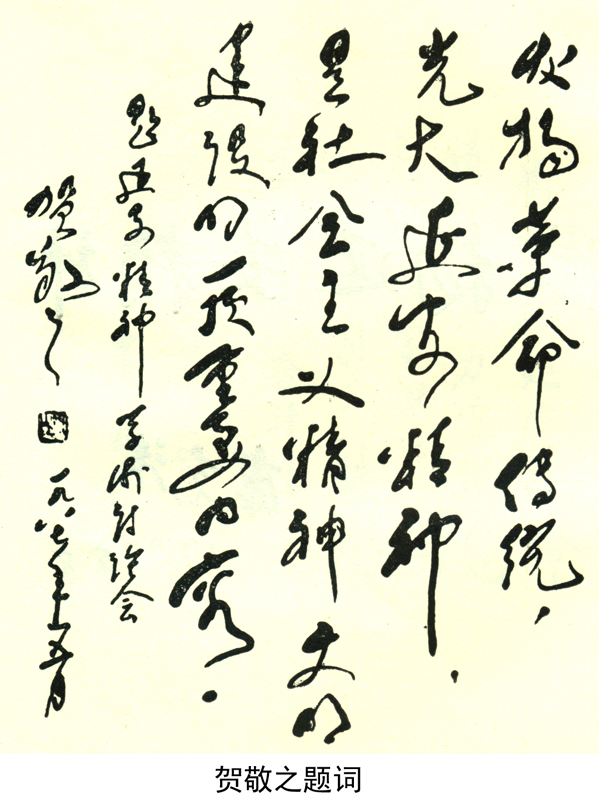 发扬革命传统，
光大延安精神，
是社会主义精神文明
建设的一项重要内容。
题延安精神学术讨论会
贺敬之
一九八七年五月
贺敬之题词